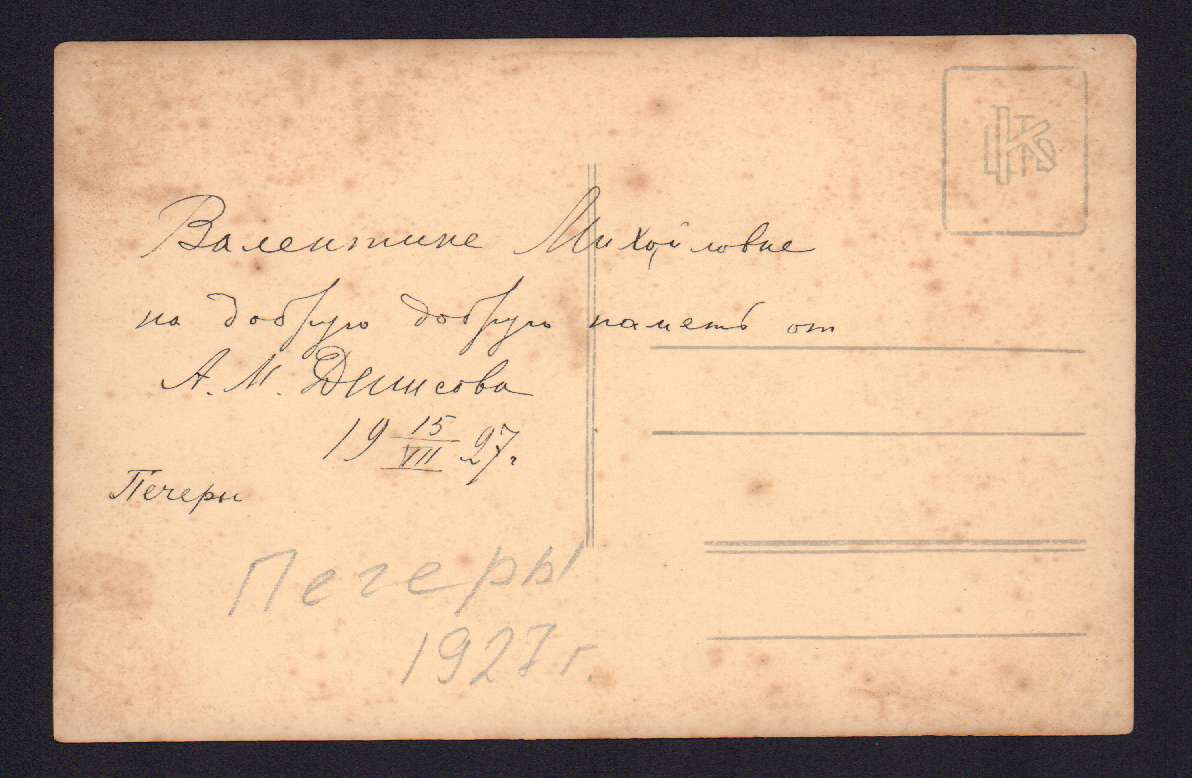 Валентине Михайловне
на добрую добрую память от
А. М. Денисова
19 15/VII 27 г.
Печеры
Печеры
1927 г.